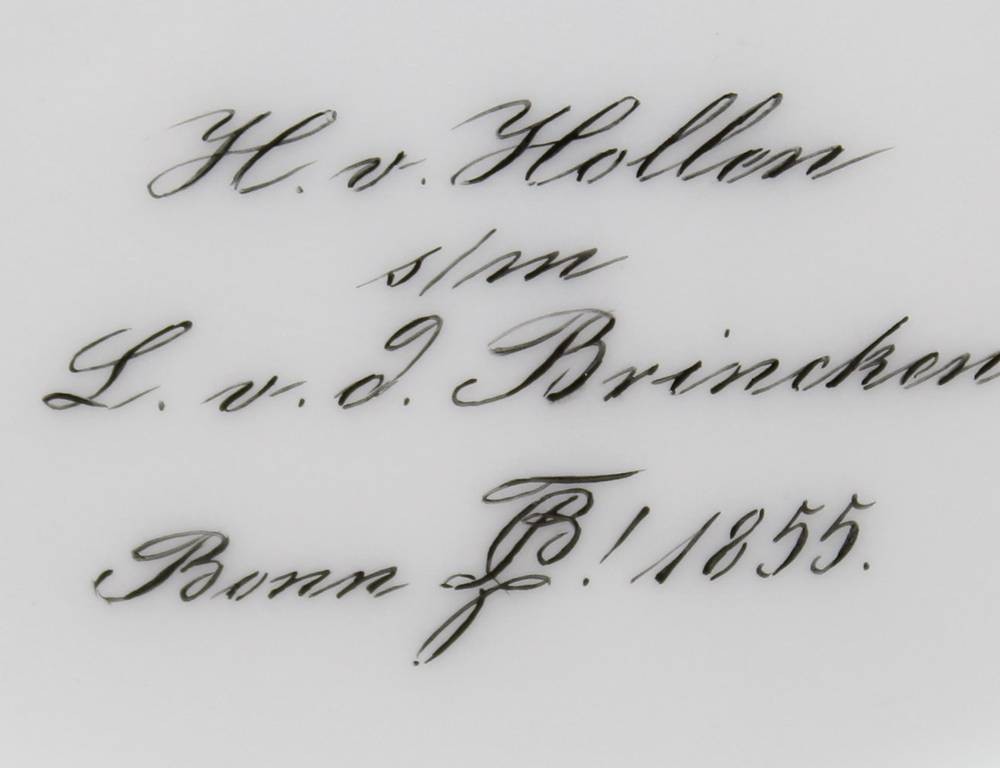 H. v. Hollen
s/m
L. v. d. Brincken
Bonn ! 1855.